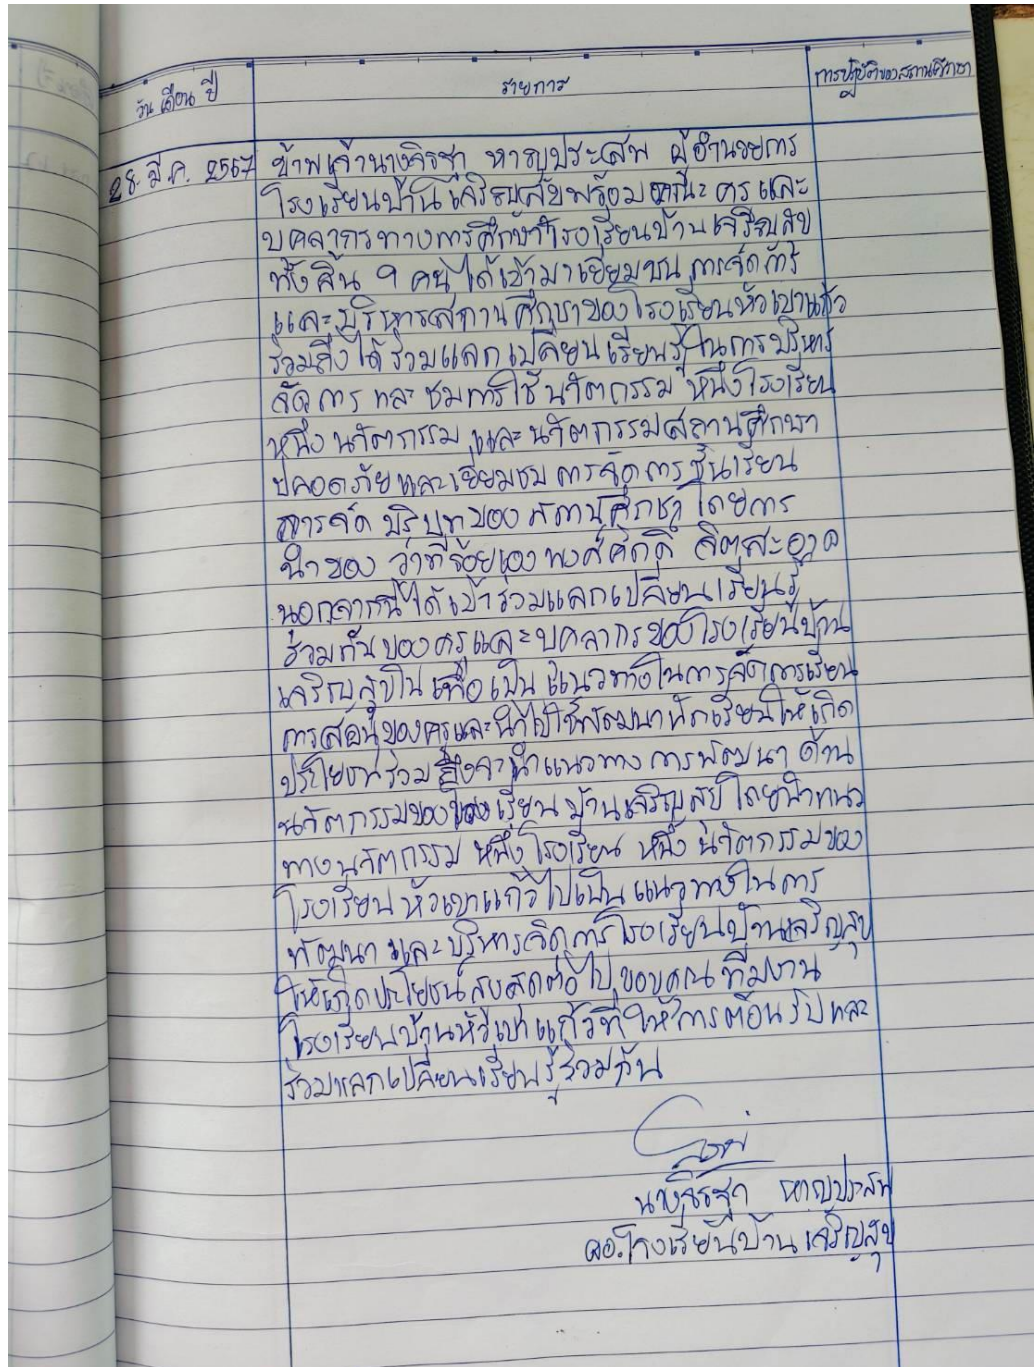 วัน เดือน ปี
รายการ
การปฏิบัติของสถานศึกษา
28 มี.ค. 2567 ข้าพเจ้านางจิรชุา หาญประสพ ผู้อำนวยการ
โรงเรียนบ้านเจริญสุขพร้อมคณะ ครู และ
บุคลากรทางการศึกษาโรงเรียนบ้านเจริญสุข
ทั้งสิ้น 9 คน ได้เข้ามาเยี่ยมชม การจัดการ
และบริหารสถานศึกษาของโรงเรียนหัวเขาแก้ว
รวมถึงได้ร่วมแลกเปลี่ยนเรียนรู้ในการบริหาร
จัดการ และ ชมการใช้นวัตกรรม หนึ่งโรงเรียน
หนึ่งนวัตกรรม และนวัตกรรมสถานศึกษา
ปลอดภัยและเยี่ยมชม การจัดการชั้นเรียน
การจัด บริบทของ สถานศึกษา โดยการ
นำของ ว่าที่ร้อยเอก พงศ์ศักดิ์ จิตสะอาด
นอกจากนี้ได้เข้าร่วมแลกเปลี่ยนเรียนรู้
ร่วมกันของครูและบุคลากรของโรงเรียนบ้าน
เจริญสุขใน เพื่อเป็น แนวทางในการจัดการเรียน
การสอนของครูและนำไปใช้พัฒนานักเรียนให้เกิด
ประโยชน์ร่วม ซึ่งจะนำแนวทาง การพัฒนา ด้าน
นวัตกรรมของโรงเรียน บ้านเจริญสุข โดยนำแนว
ทางนวัตกรรม หนึ่งโรงเรียน หนึ่ง นวัตกรรมของ
โรงเรียนหัวเขาแก้วไปเป็น แนวทางในการ
พัฒนา และบริหารจัดการโรงเรียนบ้านเจริญสุข
ให้เกิดประโยชน์สูงสุดต่อไป ขอขอบคุณ ทีมงาน
โรงเรียนบ้านหัวเขาแก้วที่ให้การต้อนรับ และ
ร่วมแลกเปลี่ยนเรียนรู้ร่วมกัน
หาญประสพ
ผอ.โรงเรียนบ้านเจริญสุข